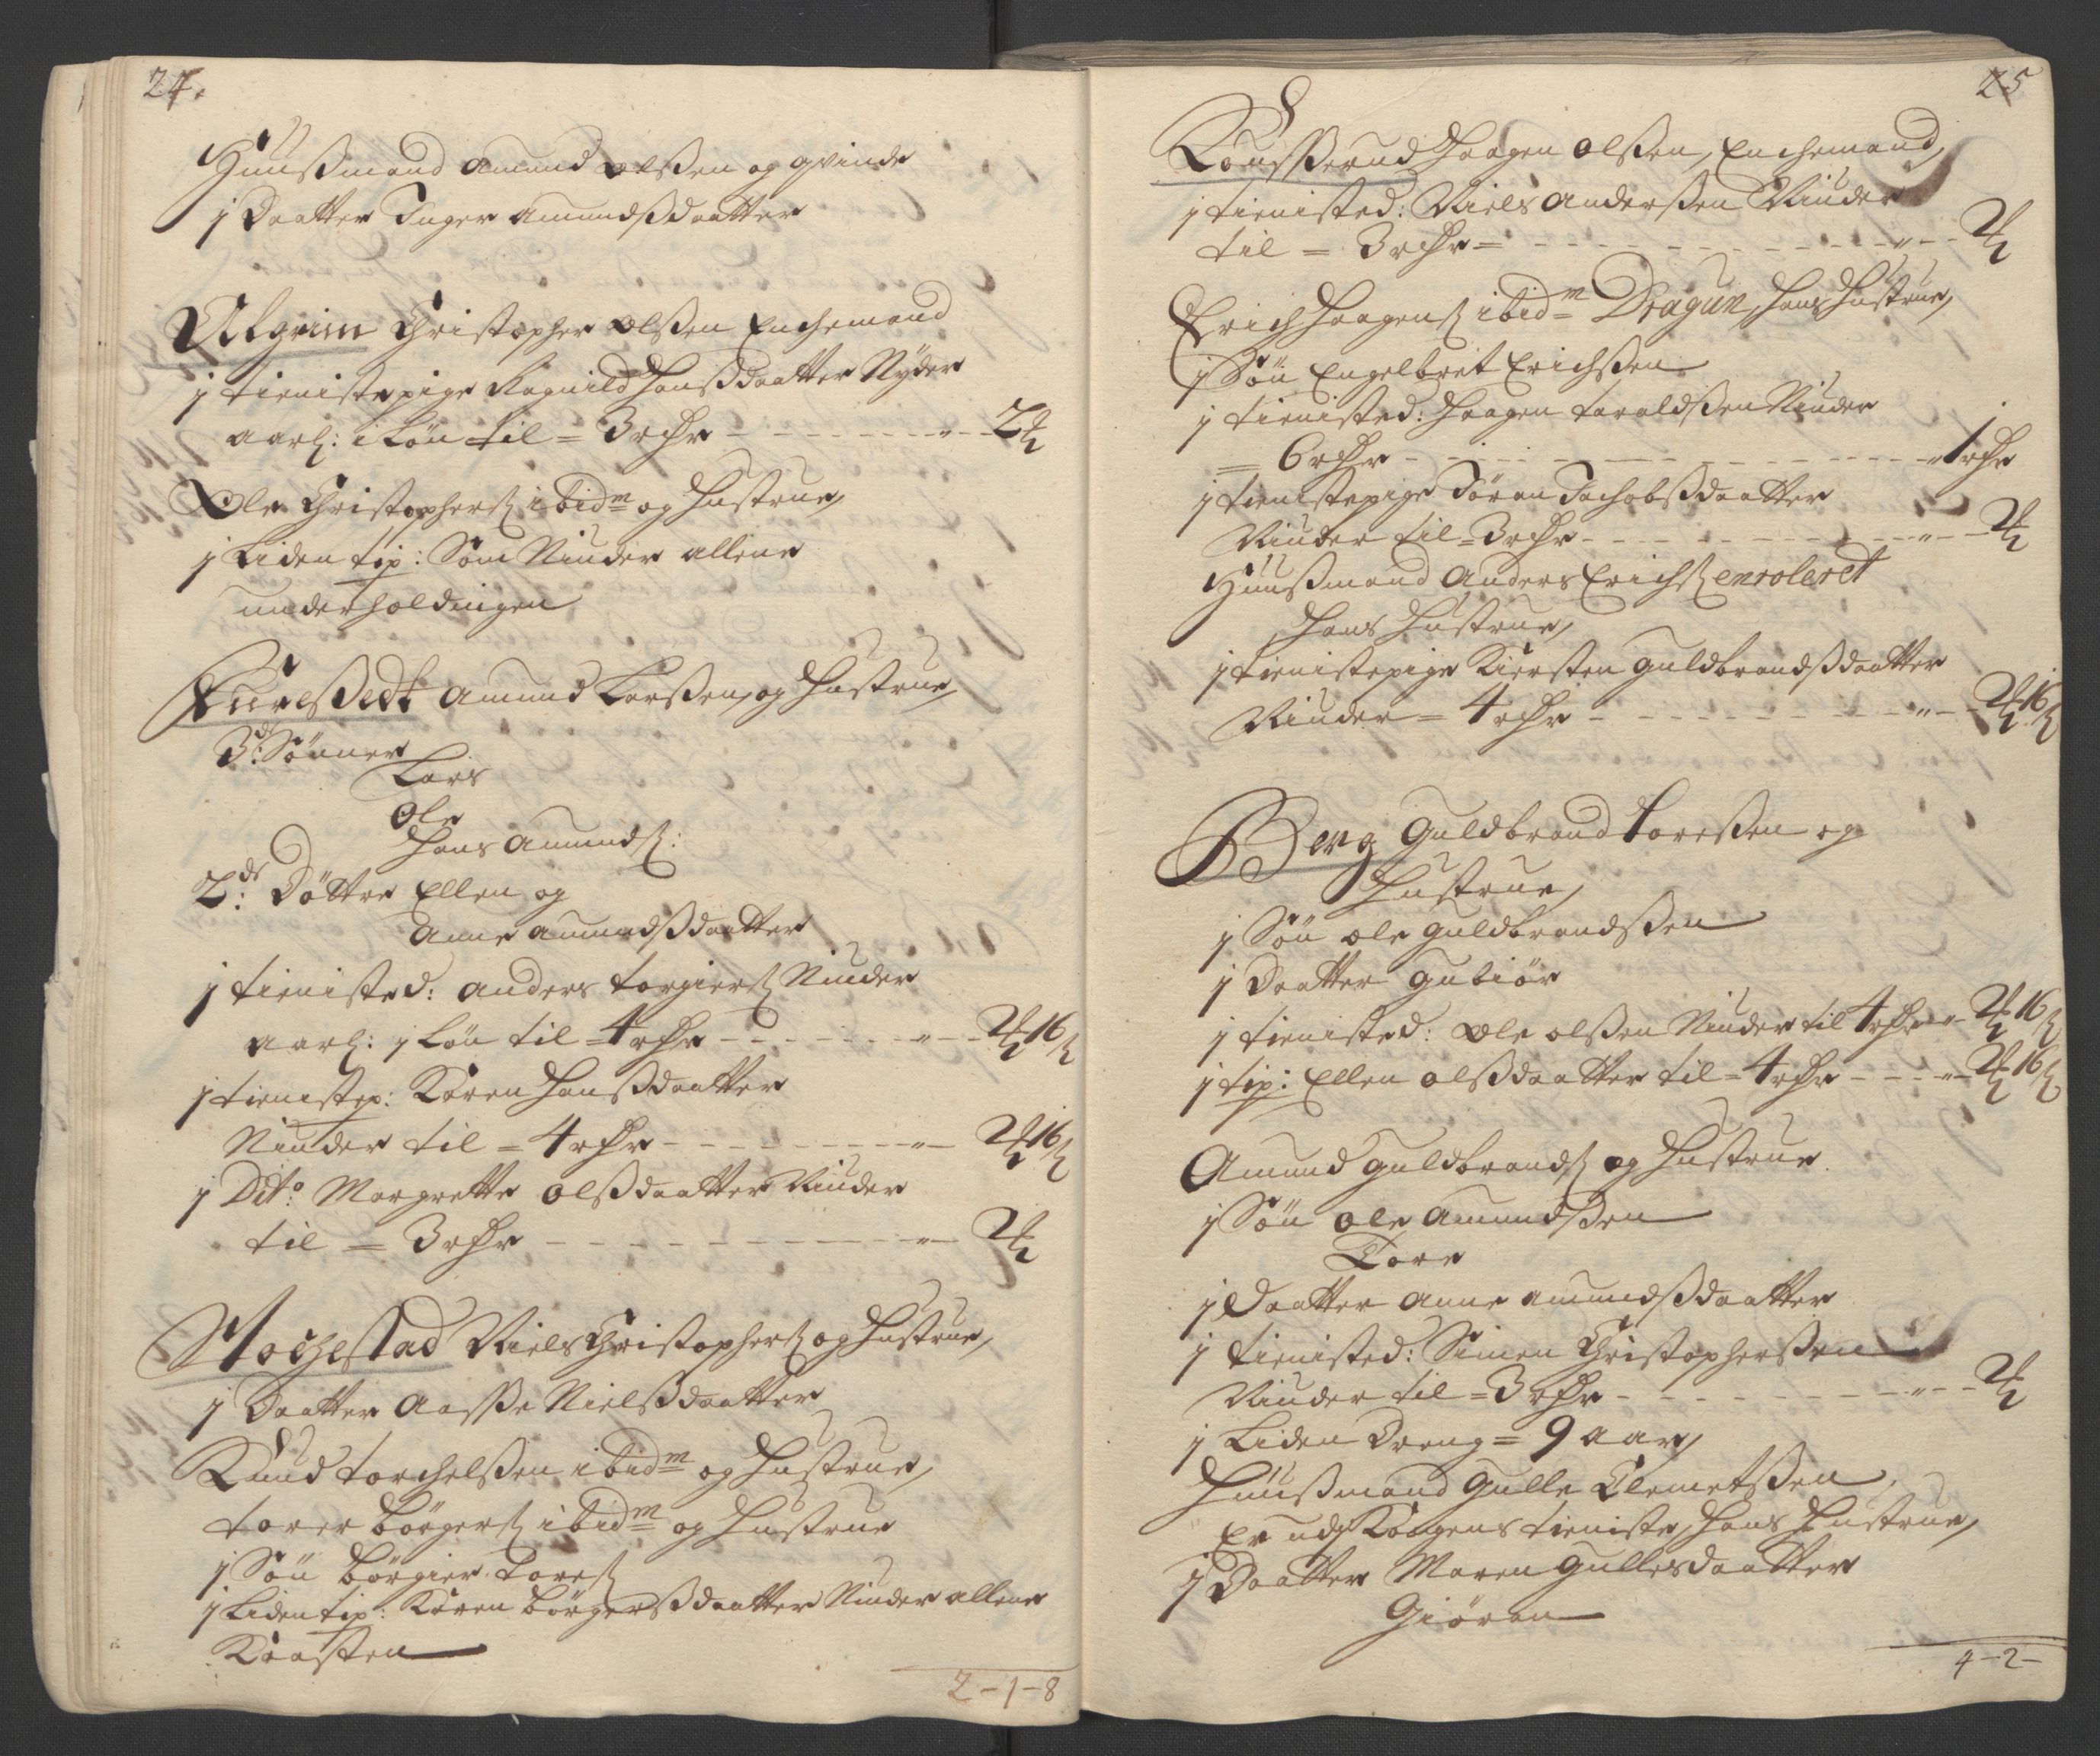 24.
Huußmand Amund Olßen og qvinde
j Daatter Inger Amundßdaatter
Ulgrim Christopher Olßen Enchemand
j tienistepige Ragnild Hanßdaatter Nyder
aarl: i Løn til = 3 rdr - - - " - 2
Ole Christophers ibidm og Hustrue,
j Liden tip: Som Niuder allene
underholdningen
Amund Larßen, og Hustrue,
3de Sönner
Lars
Ole
Hans Amunds:
2de: Döttre Ellen og
Anne Amundßdaatter
j tienisted: Anders Torgiers Niuder
aarl: j Løn til = 4 rdr - - - " - 2 16
j tienistep: Karen Hanßdaatter
Niuder til = 4 rdr - - - " - 2 16
j Dito: Margrette Olßdaatter Niuder
til = 3 rdr - - - " - 2
Stochestad Niels Christophers og Hustrue,
j Daatter Aaße Nielßdaatter
Knud Torchelßen ibidm og Hustrue,
Torer Börgers ibidm og Hustrue
j Sön Börgier Tores
j Liden tip: Karen Börgerßdaatter Niuder allene
Kaasten
2-1-8
25
Haagen Olßen, Enchemand,
j tienisted: Niels Anderßen Niuder
til = 3 rdr = - - - " - 2
Erich Haagens ibidm Dragun, Hans Hustrue,
j Sön Engelbret Erichßen
j tienisted: Haagen Taraldßen Niuder
= 6 rdr - - - " 1 rdr
j tienistepige Jöran Jachobßdaatter
Niuder til = 3 rdr - - - " - 2
Huußmand Anders Erichs enroleret
Hans Hustrue,
j tienistepige Kiersten Guldbrandßdaatter
Niuder = 4 rdr - - - " - 2 16
Berg Guldbrand Toreßen og
Hustrue,
j Sön Ole Guldbrandßen
j Daatter Gubiör
j tienisted: Ole Olßen Niuder til 4 rdr - " - 2 16
j tip: Ellen Olßdaatter til = 4 rdr - - - " - 2 16
Amund Guldbrands og Hustrue.
j Sön Ole Amundßen
Tore
j Daatter Anne Amundßdaatter
j tienisted: Simen Christopherßen
Niuder til = 3 rdr - - - " - 2
j Liden Dreng = 9 aar,
Huußmand Gulle Clemetßen,
Er udj Kongens tieniste, Hans Hustrue,
j Daatter Maren Gullesdaatter
Giöran
4-2-